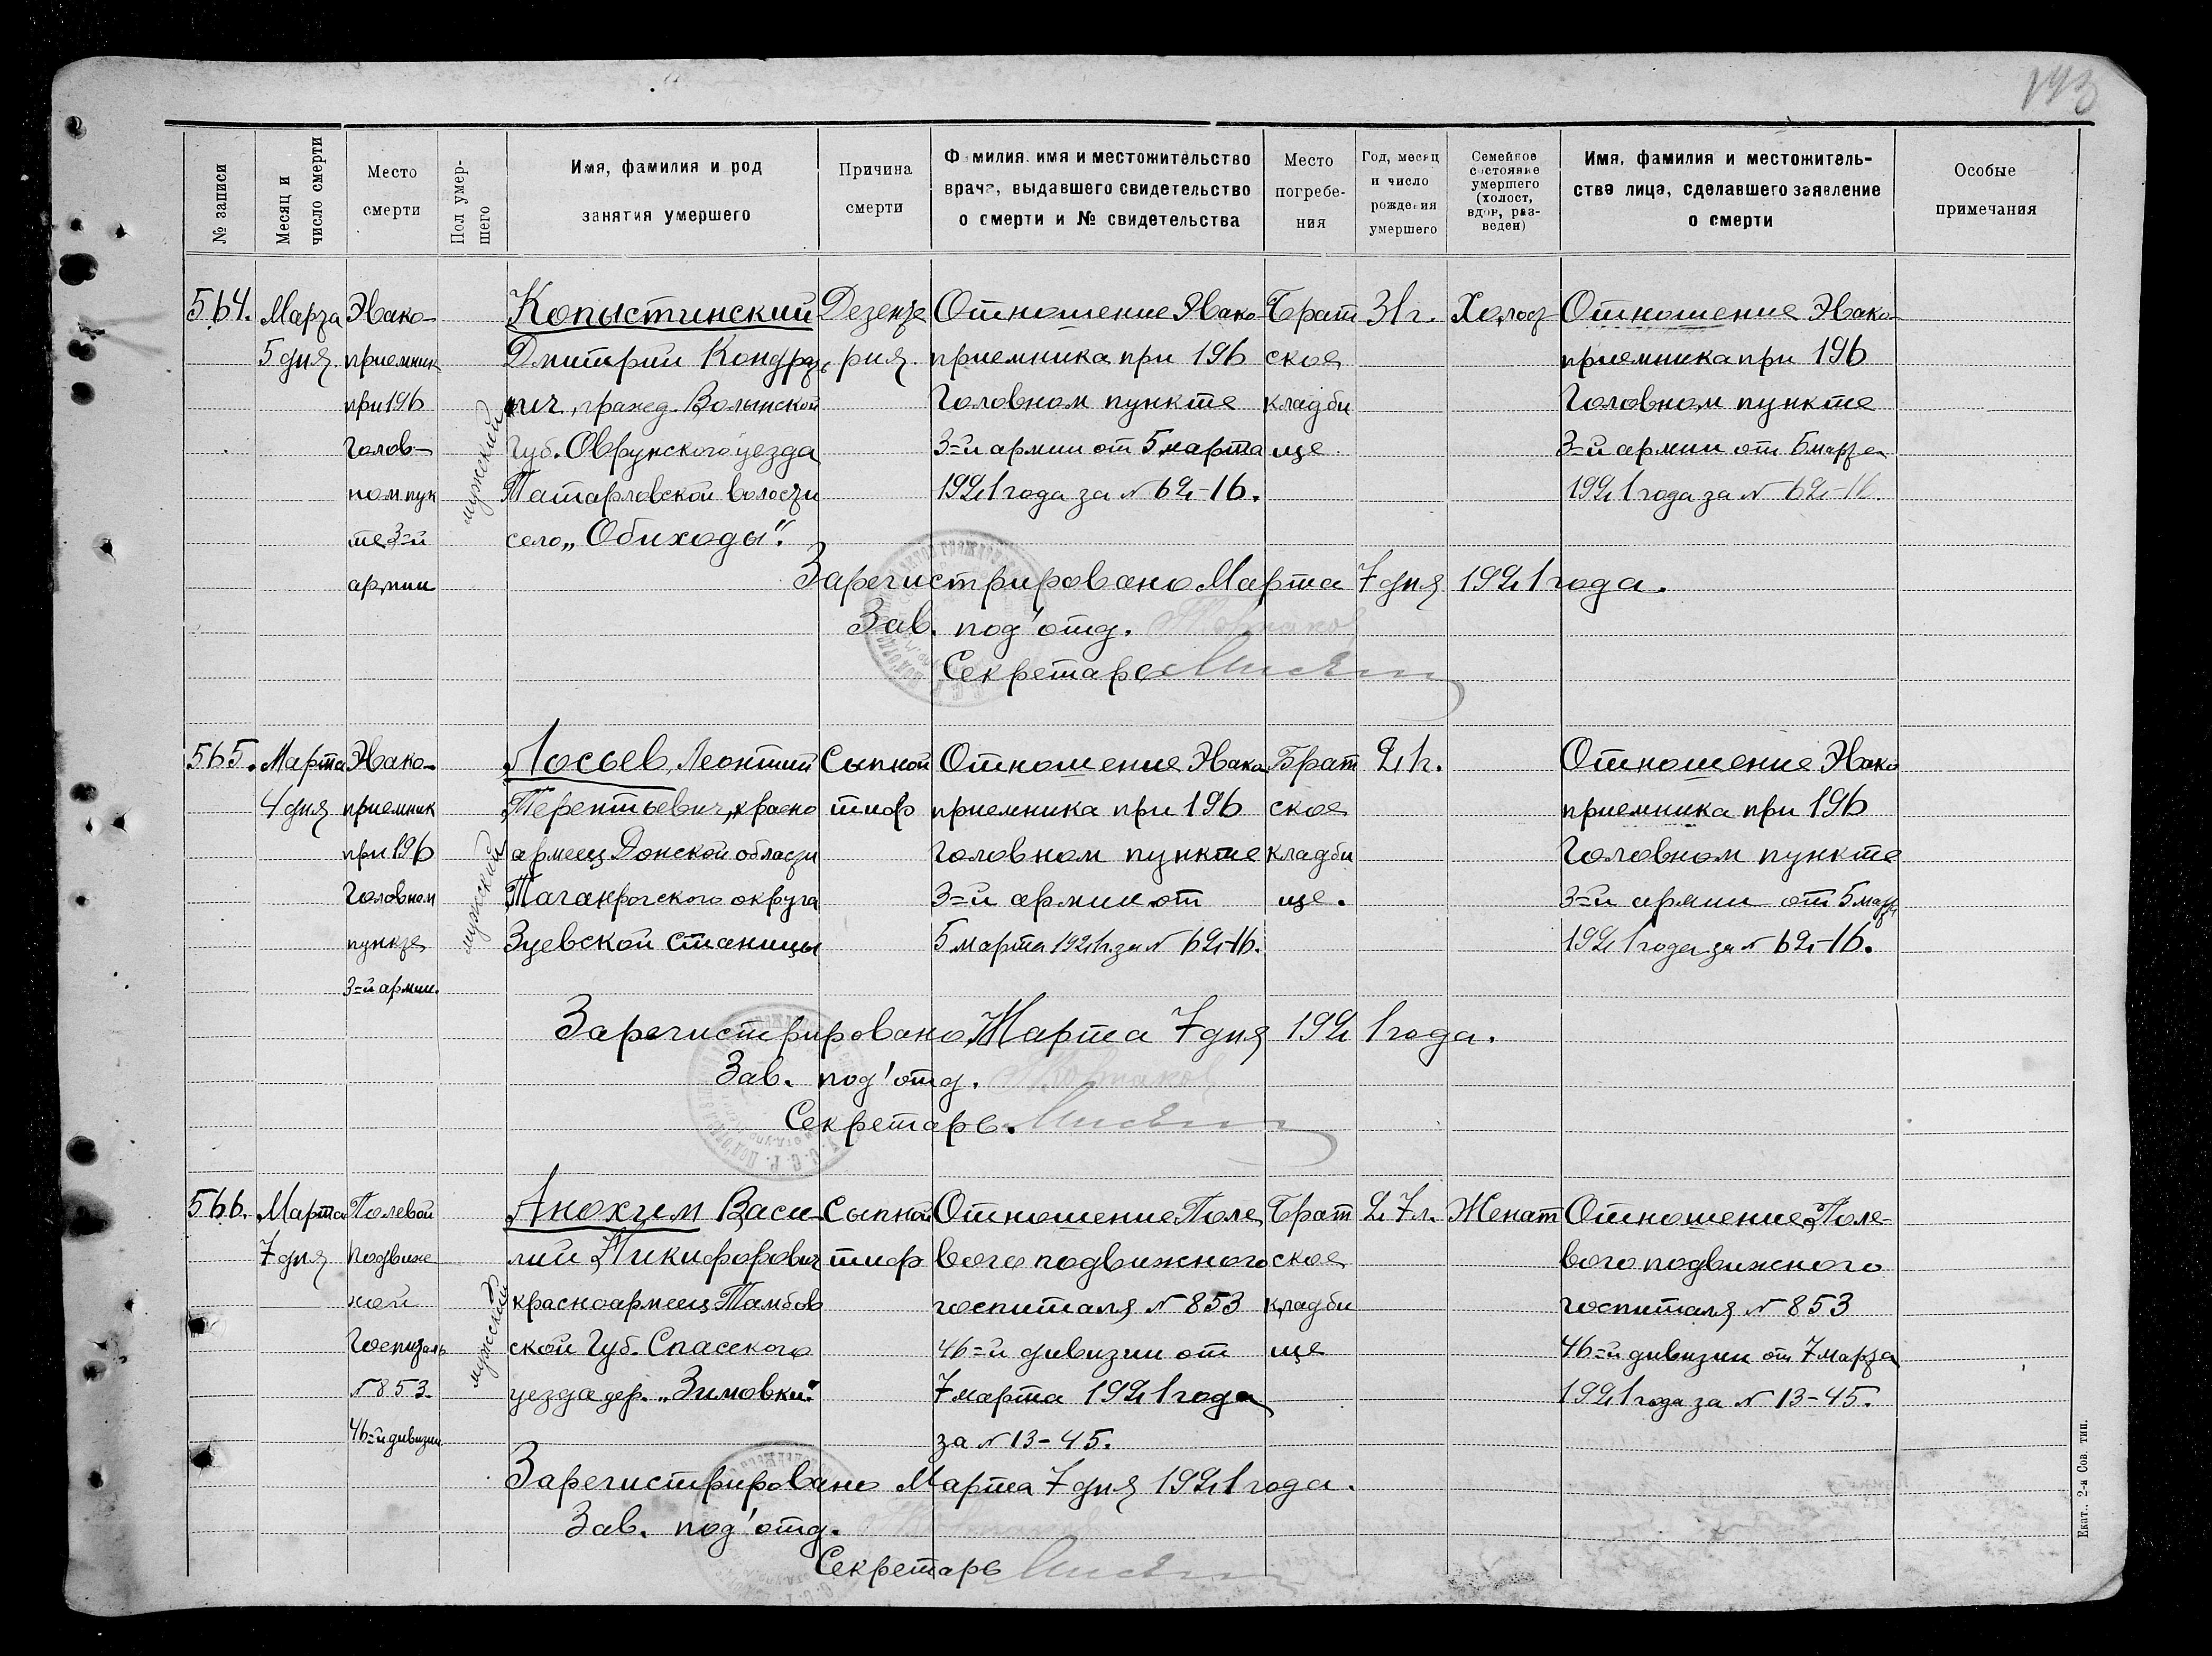 193
№ записи
Месяц и
число смерти
Место
смерти
Пол умер-
шего
Имя, фамилия и род
занятия умершего
Причина
смерти
Фамилия. имя и местожительство
врача, выдавшего свидетельство
о смерти и № свидетельства
Место
погребе-
ния
Год, месяц
и число
рождения
умершего
Семейное
состояние
умершего
(холост,
вдов, раз-
веден)
Имя, фамилия и местожитель-
ство лица, сделавшего заявление
о смерти
Особые
примечания
564.
Марта
5 дня
Нако-
приемник
при 196
Голов-
ном пунк
те 3=й
армии
мужский
Копыстинский
Дмитрий Кондрать
ич, гражд. Волынской
Губ. Овручского уезда
волости
село „Обиходы".
Дезенте
рия.
Отношение Нако
приемника при 196
Головном пункте
3=й армии от 5 марта
1921 года за № 62-16.
Брат
ское
кладби
ще
31 г.
Холост
Отношение Нако
приемника при 196
Головном пункте
3=й армии от 5 марта
1921 года за № 62-16.
Зарегистрировано Марта 7 дня 1921 года.
Зав. под'отд.
Секретарь
565.
Марта
4 дня
Нако-
приемник
при 196
Головном
пункте
3=й армии.
мужский
Лосьев, Леонтий
Терентьевич, красно
армеец Донской области
Таганрогского округа
Зуевской станицы
Сыпной
тиф
Отношение Нако
приемника при 196
Головном пункте
3=й армии от
5 марта 1921 г. за № 62-16.
Брат
ское
кладби
ще.
21 г.
Отношение Нако
приемника при 196
Головном пункте
3=й армии от 5 марта
1921 года за № 62-16.
Зарегистрировано Марта 7 дня 1921 года.
Зав. под'отд.
Секретарь.
566.
Марта
7 дня
Полевой
подвиж
ной
Госпиталь
№ 853
46=й дивизии
мужский
Анохим Васи
лий Никифорович
красноармеец Тамбов
ской Губ. Спасского
уезда дер. „Зимовки".
Сыпной
тиф
Отношение Поле
вого подвижного
госпиталя № 853
46=й дивизии от
7 марта 1921 года
за № 13-45.
Брат
ское
кладби
ще
27 л.
Женат
Отношение Поле-
вого подвижного
госпиталя № 853
46=й дивизии от 7 марта
1921 года за № 13-45.
Зарегистрировано Марта 7 дня 1921 года.
Зав. под'отд.
Секретарь
Екат.. 2-я Сов тип.